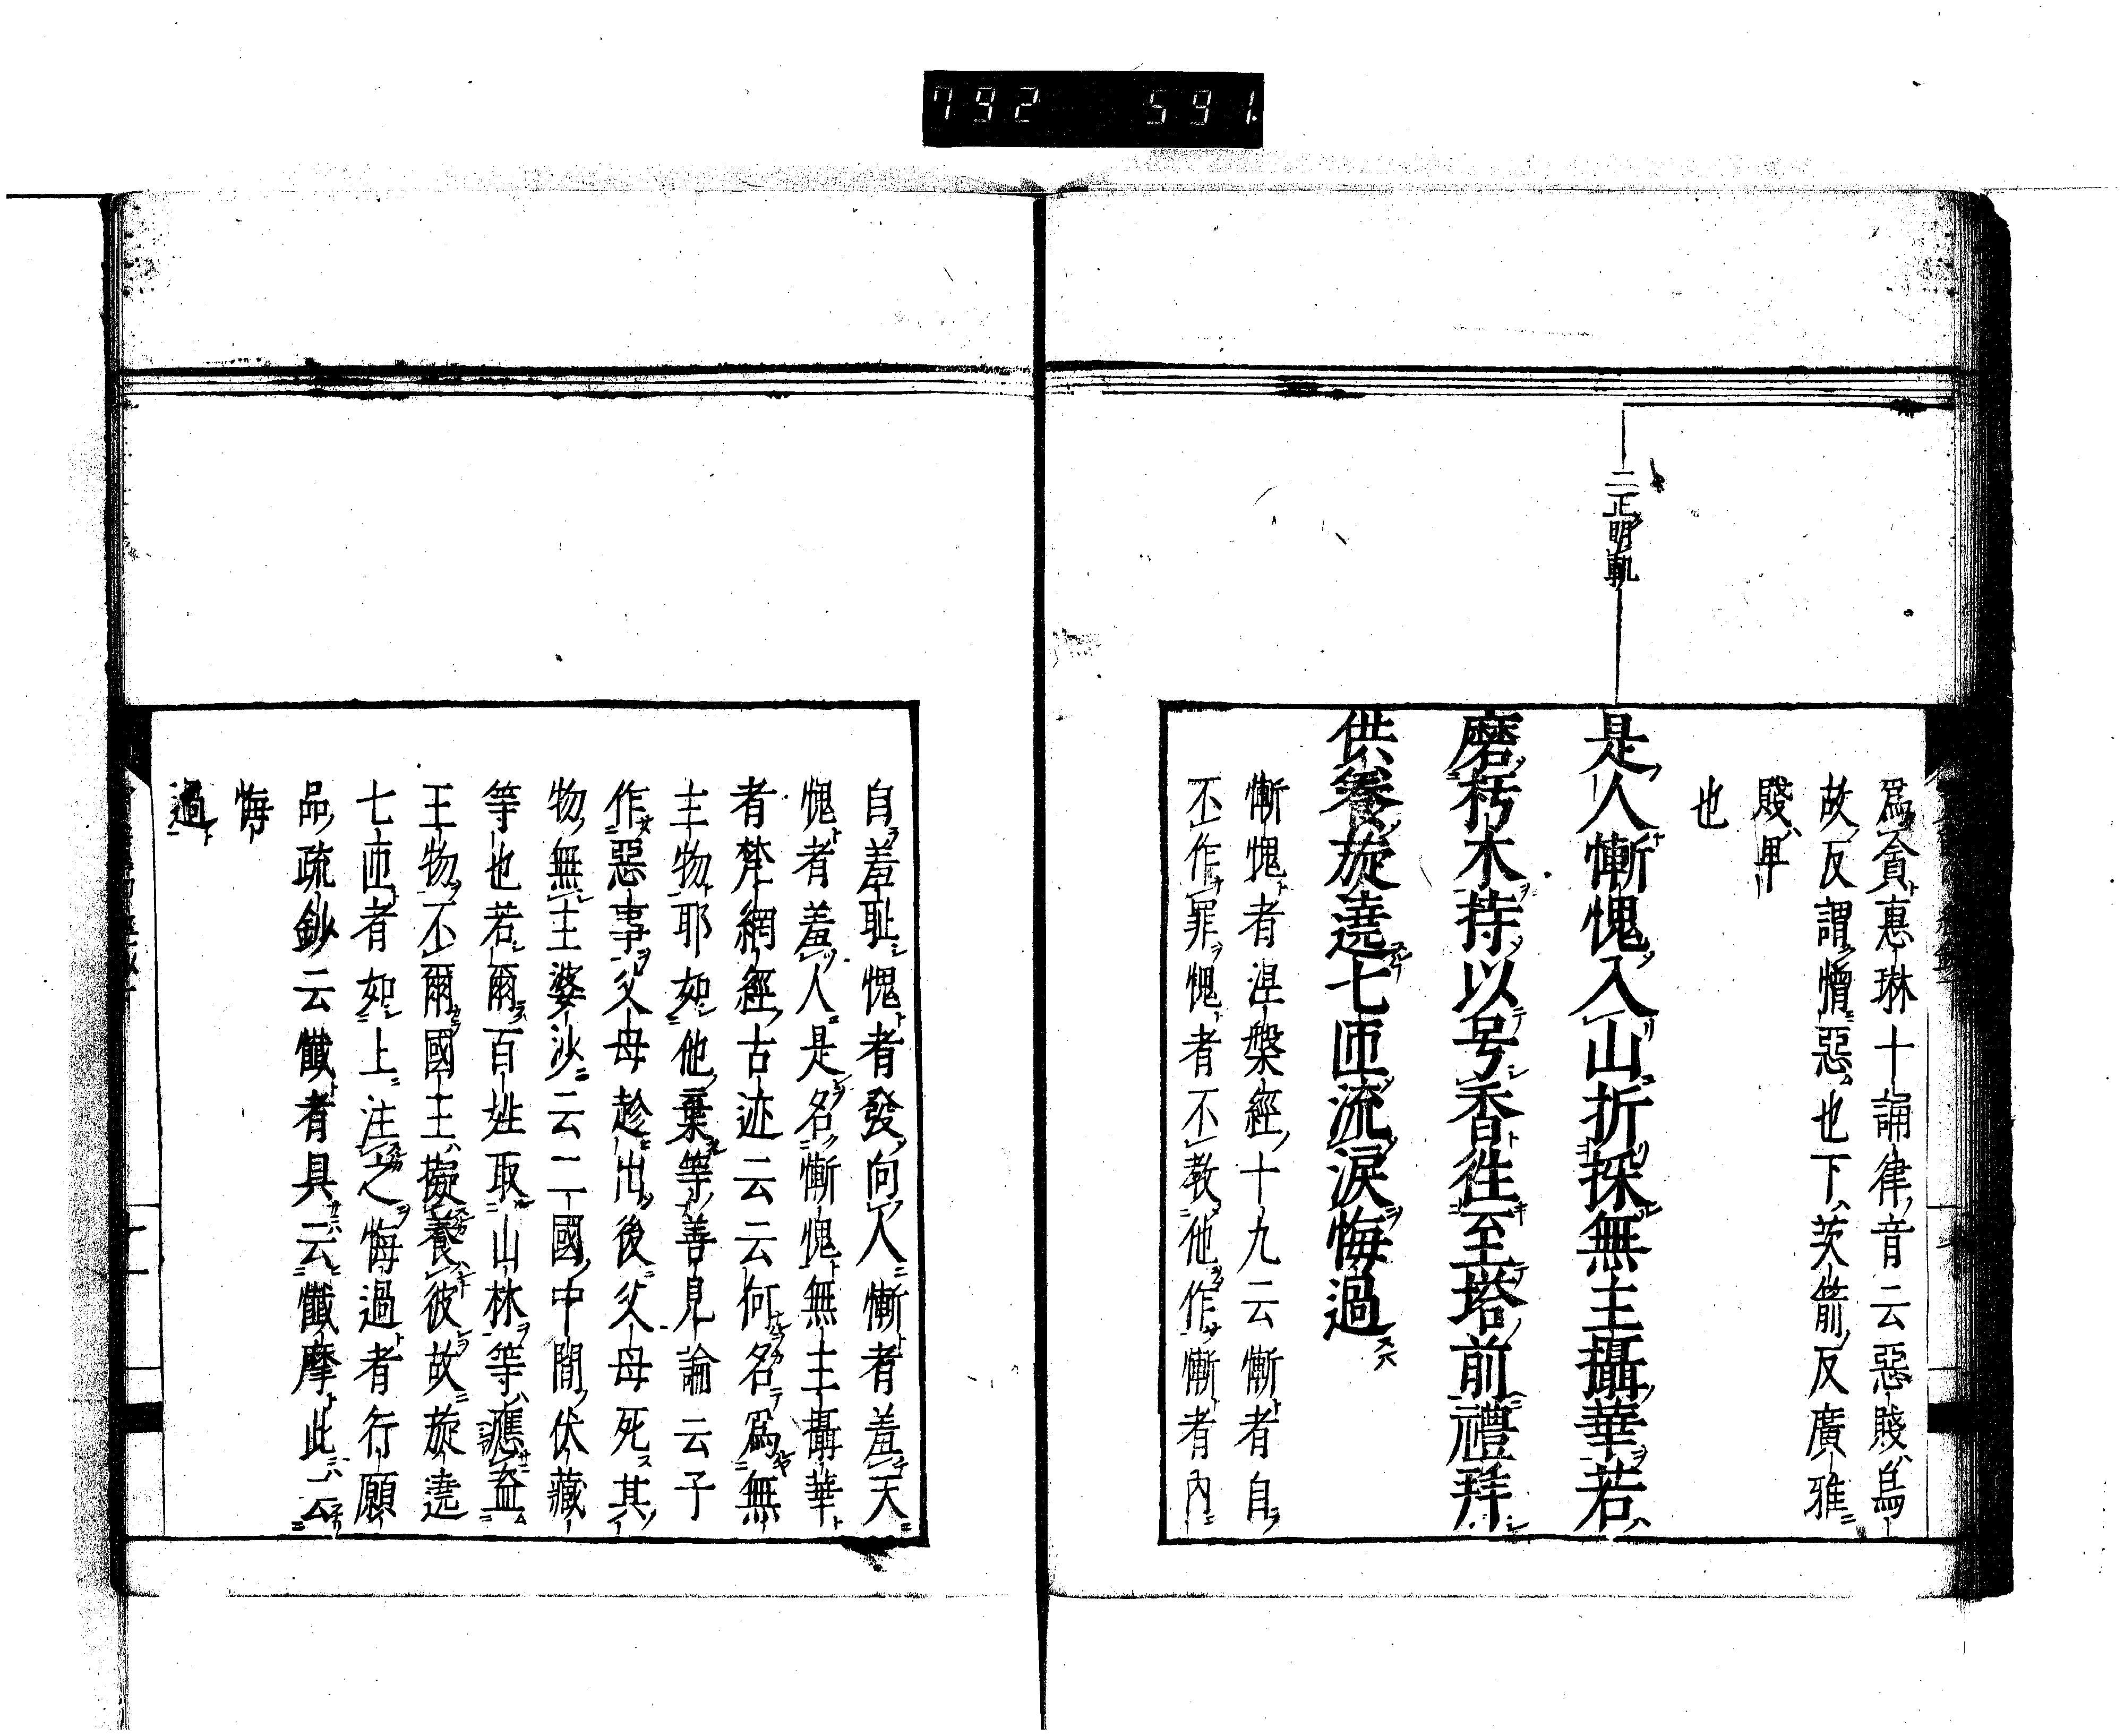 792 591.
二正明軌
爲貪惠琳十誦律音云惡賤烏
故反謂憎惡也下茨箭反廣雅
賤卑
也
是人慚愧入山折採無主攝華若
磨朽木持以号香徃至塔前禮拜
供養旋遶七匝流涙悔過
慚愧者涅槃經十九云慚者自
不作罪愧者不教他作慚者內
自羞耻愧者發向人慚者羞天
愧者羞人是名慚愧無主攝華
者梵網經古迹云云何名爲無
主物耶如他棄等善見論云子
作惡事父母趁出後父母死其
物無主婆沙云二國中間伏藏
等也若爾百姓取山林等應盜
王物不爾國王擬養彼故旋遶
七匝者如上注之悔過者行願
品疏鈔云懺者具云懺摩此云
悔
過